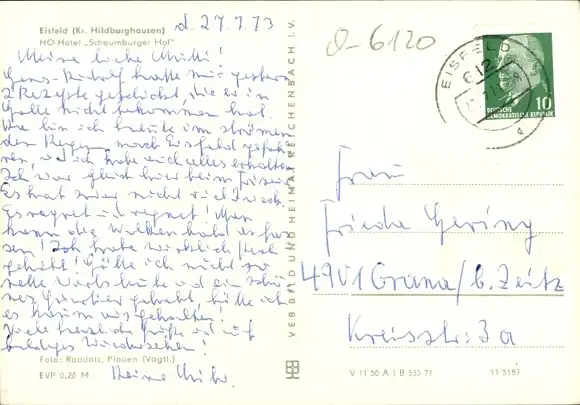 Eisfeld (Kr. Hildburghausen)
HO-Hotel "Schaumburger Hof"
d. 27.7.73
Meine liebe Mutti!
Hans-Rudolf hatte mir gestern
2 Rezepte geschickt, die er in
Halle nicht bekommen hat.
bin ich heute im strömen
den Regen nach Eisfeld gefah
ren, und ich habe auch alles erhalten
Ich war gleich hier beim Friseur
Es hat zwar nicht viel Zweck.
Es regnet u. regnet! Man
kann die Wolken bald anfas
sen! Ich habe wirklich Pech
gehabt! Hätte ich nicht so
nette Wirtsleute und ein schö
nes Quartier gehabt, hätte ich
es kaum ausgehalten!
Viele herzliche Grüße und auf
baldiges Wiedersehen!
Deine
Foto: Raddatz, Plauen (Vogtl.)
EVP 0,25 M
VEB BILD UND HEIMAT REICHENBACH I. V.
O-6120
EISFELD
612
10
DEUTSCHE
DEMOKRATISCHE REPUBLIK
Frau
Frieda Gering
4901 Grana/b. Zeitz
Kreisstr. 3a
V 11 50 A 1 B 535 71
11 5187